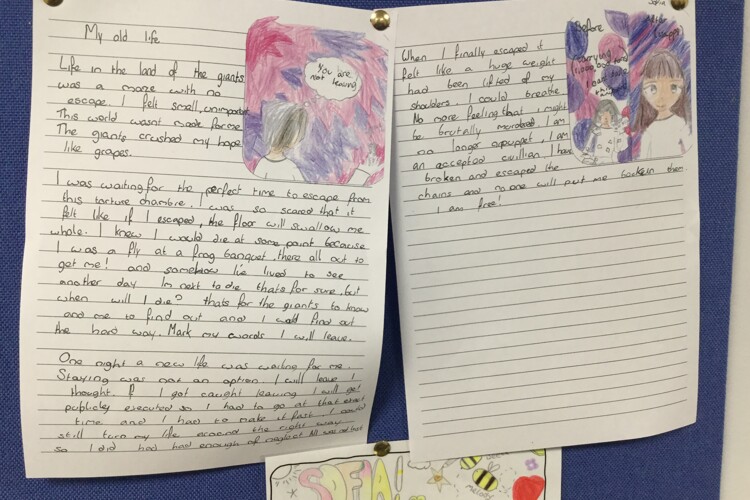 My old life
Life in the land of the giants
was a maze with no
escape. I felt small, unimportant
This world wasnt made for me
The giants crushed my hope
like grapes.
You are
not leaving
I was waiting for the perfect time to escape from
this tarture chambre. I was so scared that it
felt like if I escaped, the floor will swallow me
whole. I knew I would die at some point because
I was a fly at a frog banquet, there all out to
get me! and somehow I've lived to see
another day Im next to die thats for sure, but
when will I die? thats for the giants to know
and me to find out and I will find out
the hard way. Mark my words I will leave.
One night a new life was waiting for me.
Staying was not an option I will leave I
thought. If I got caught leaving I will get
publicly executed so I had to go at that exact
time and I had to make it fast. I could
still turn my life around the right way
so I did had had enough of neglect
When I finally escaped it
felt like a huge weight
had been lifted of my
shoulders. I could breathe
No more feeling that I might
be brutally I am
no longer a puppet, I am
an accepted civillian. I have
broken and escaped the
chains and no one will put me back in them.
I am free!
Sofia
Before
After
SOFIA